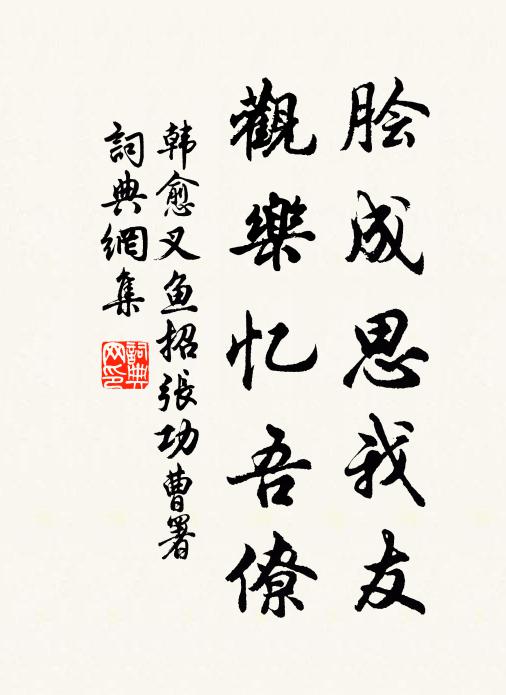 脍成思我友
觀樂忆吾僚
韩愈叉鱼招張功曹署
詞典網集
詞典网印